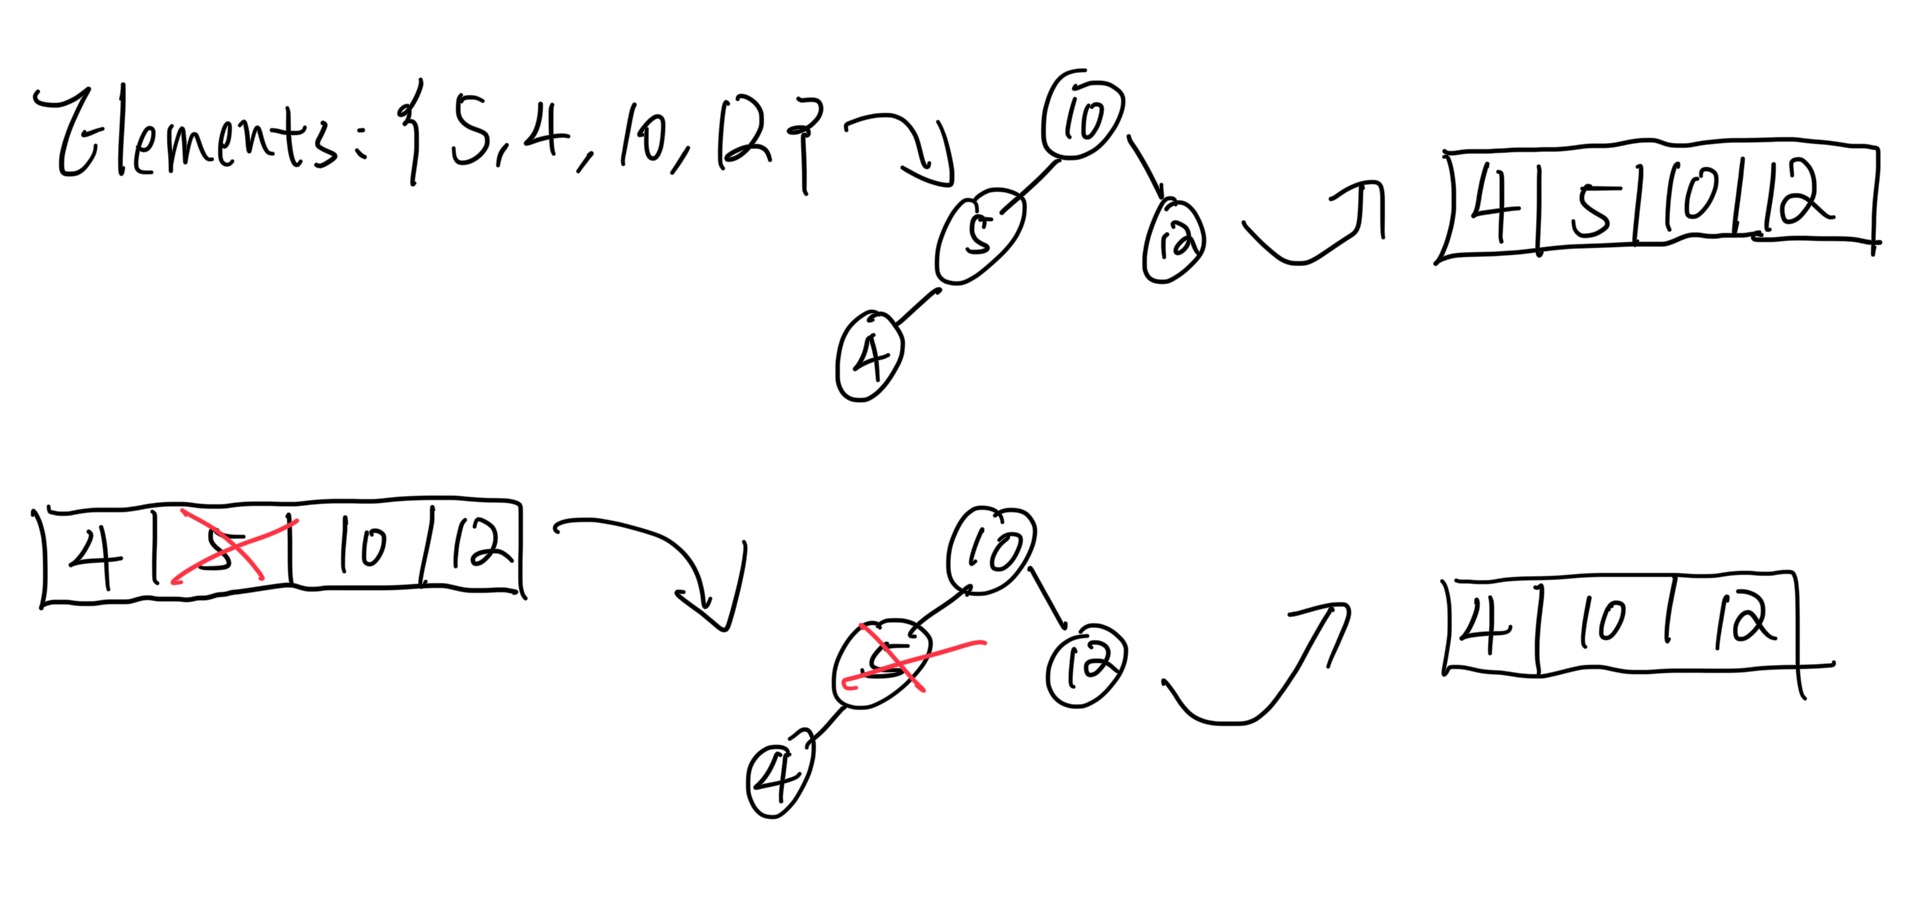 Elements: { 5, 4, 10, 12 }
10
5
12
4
4 5 10 12
4 5 10 12
10
5
12
4
4 10 12